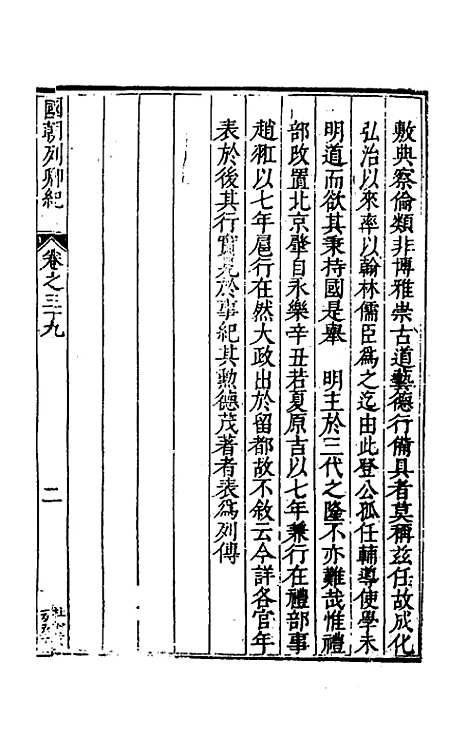 敷典察倫類非博雅崇古道藝德行備具者莫稱茲任故成化
弘治以來率以翰林儒臣爲之迄由此登公孤任輔導使學未
明道而欲其秉持國是舉　明主於三代之隆不亦難哉惟禮
部改置北京肇自永樂辛丑若夏原吉以七年兼行在禮部事
趙羾以七年扈行在然大政出於留都故不敘云今詳各官年
表於後其行實見於事紀其勲德茂著者表爲列傳
國朝列卿紀
卷之三十九
二